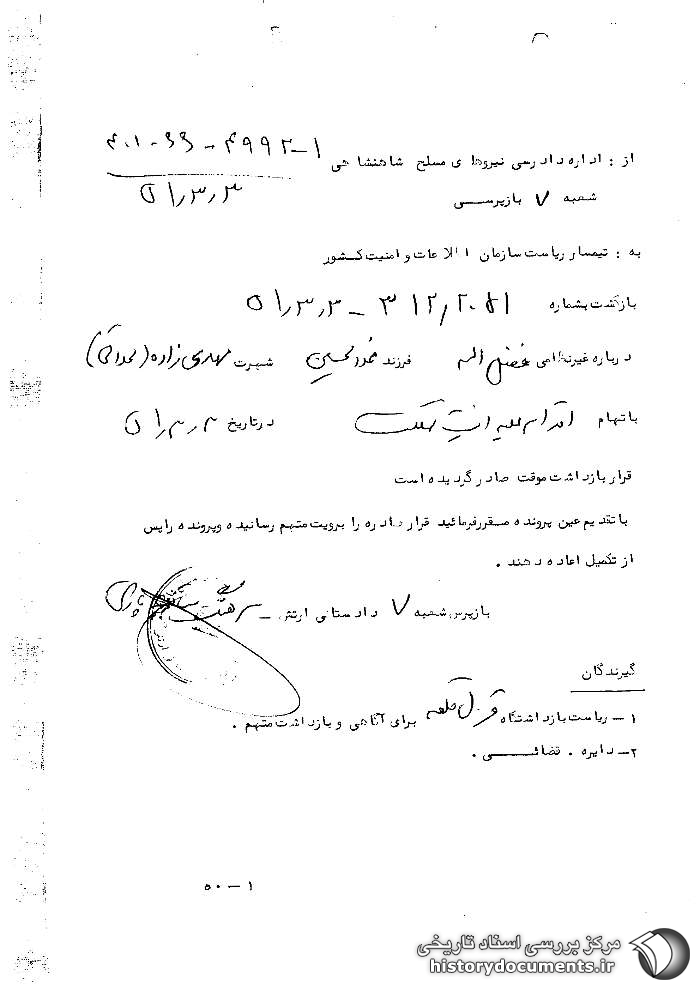 از : اداره دادرسی نیروهای مسلح شاهنشاهی ۱-۴۹۹۲-۶۶-۴۰۱
شعبه ۷ بازپرسی ۵۱٫۳٫۳
به : تیمسار ریاست سازمان اطلاعات و امنیت کشور
بازگشت بشماره ۳۱۲٫۲۰۵۱ - ۵۱٫۳٫۳
درباره غیرنظامی فضل اله فرزند شهرت مهدی زاده (محلاتی)
باتهام اقدام علیه امنیت مملکت در تاریخ ۵۱٫۳٫۳
قرار بازداشت موقت صادر گردیده است
با تقدیم عین پرونده مقرر فرمائید قرار صادره را برویت متهم رسانیده و پرونده را پس
از تکمیل اعاده دهند .
بازپرس شعبه ۷ دادستانی ارتش - سرهنگ
گیرندگان
۱ - ریاست بازداشتگاه قزل قلعه برای آگاهی و بازداشت متهم .
۲- دایره . قضائی .
۵۰ - ۱
مرکز بررسی اسناد تاریخی
historydocuments.ir